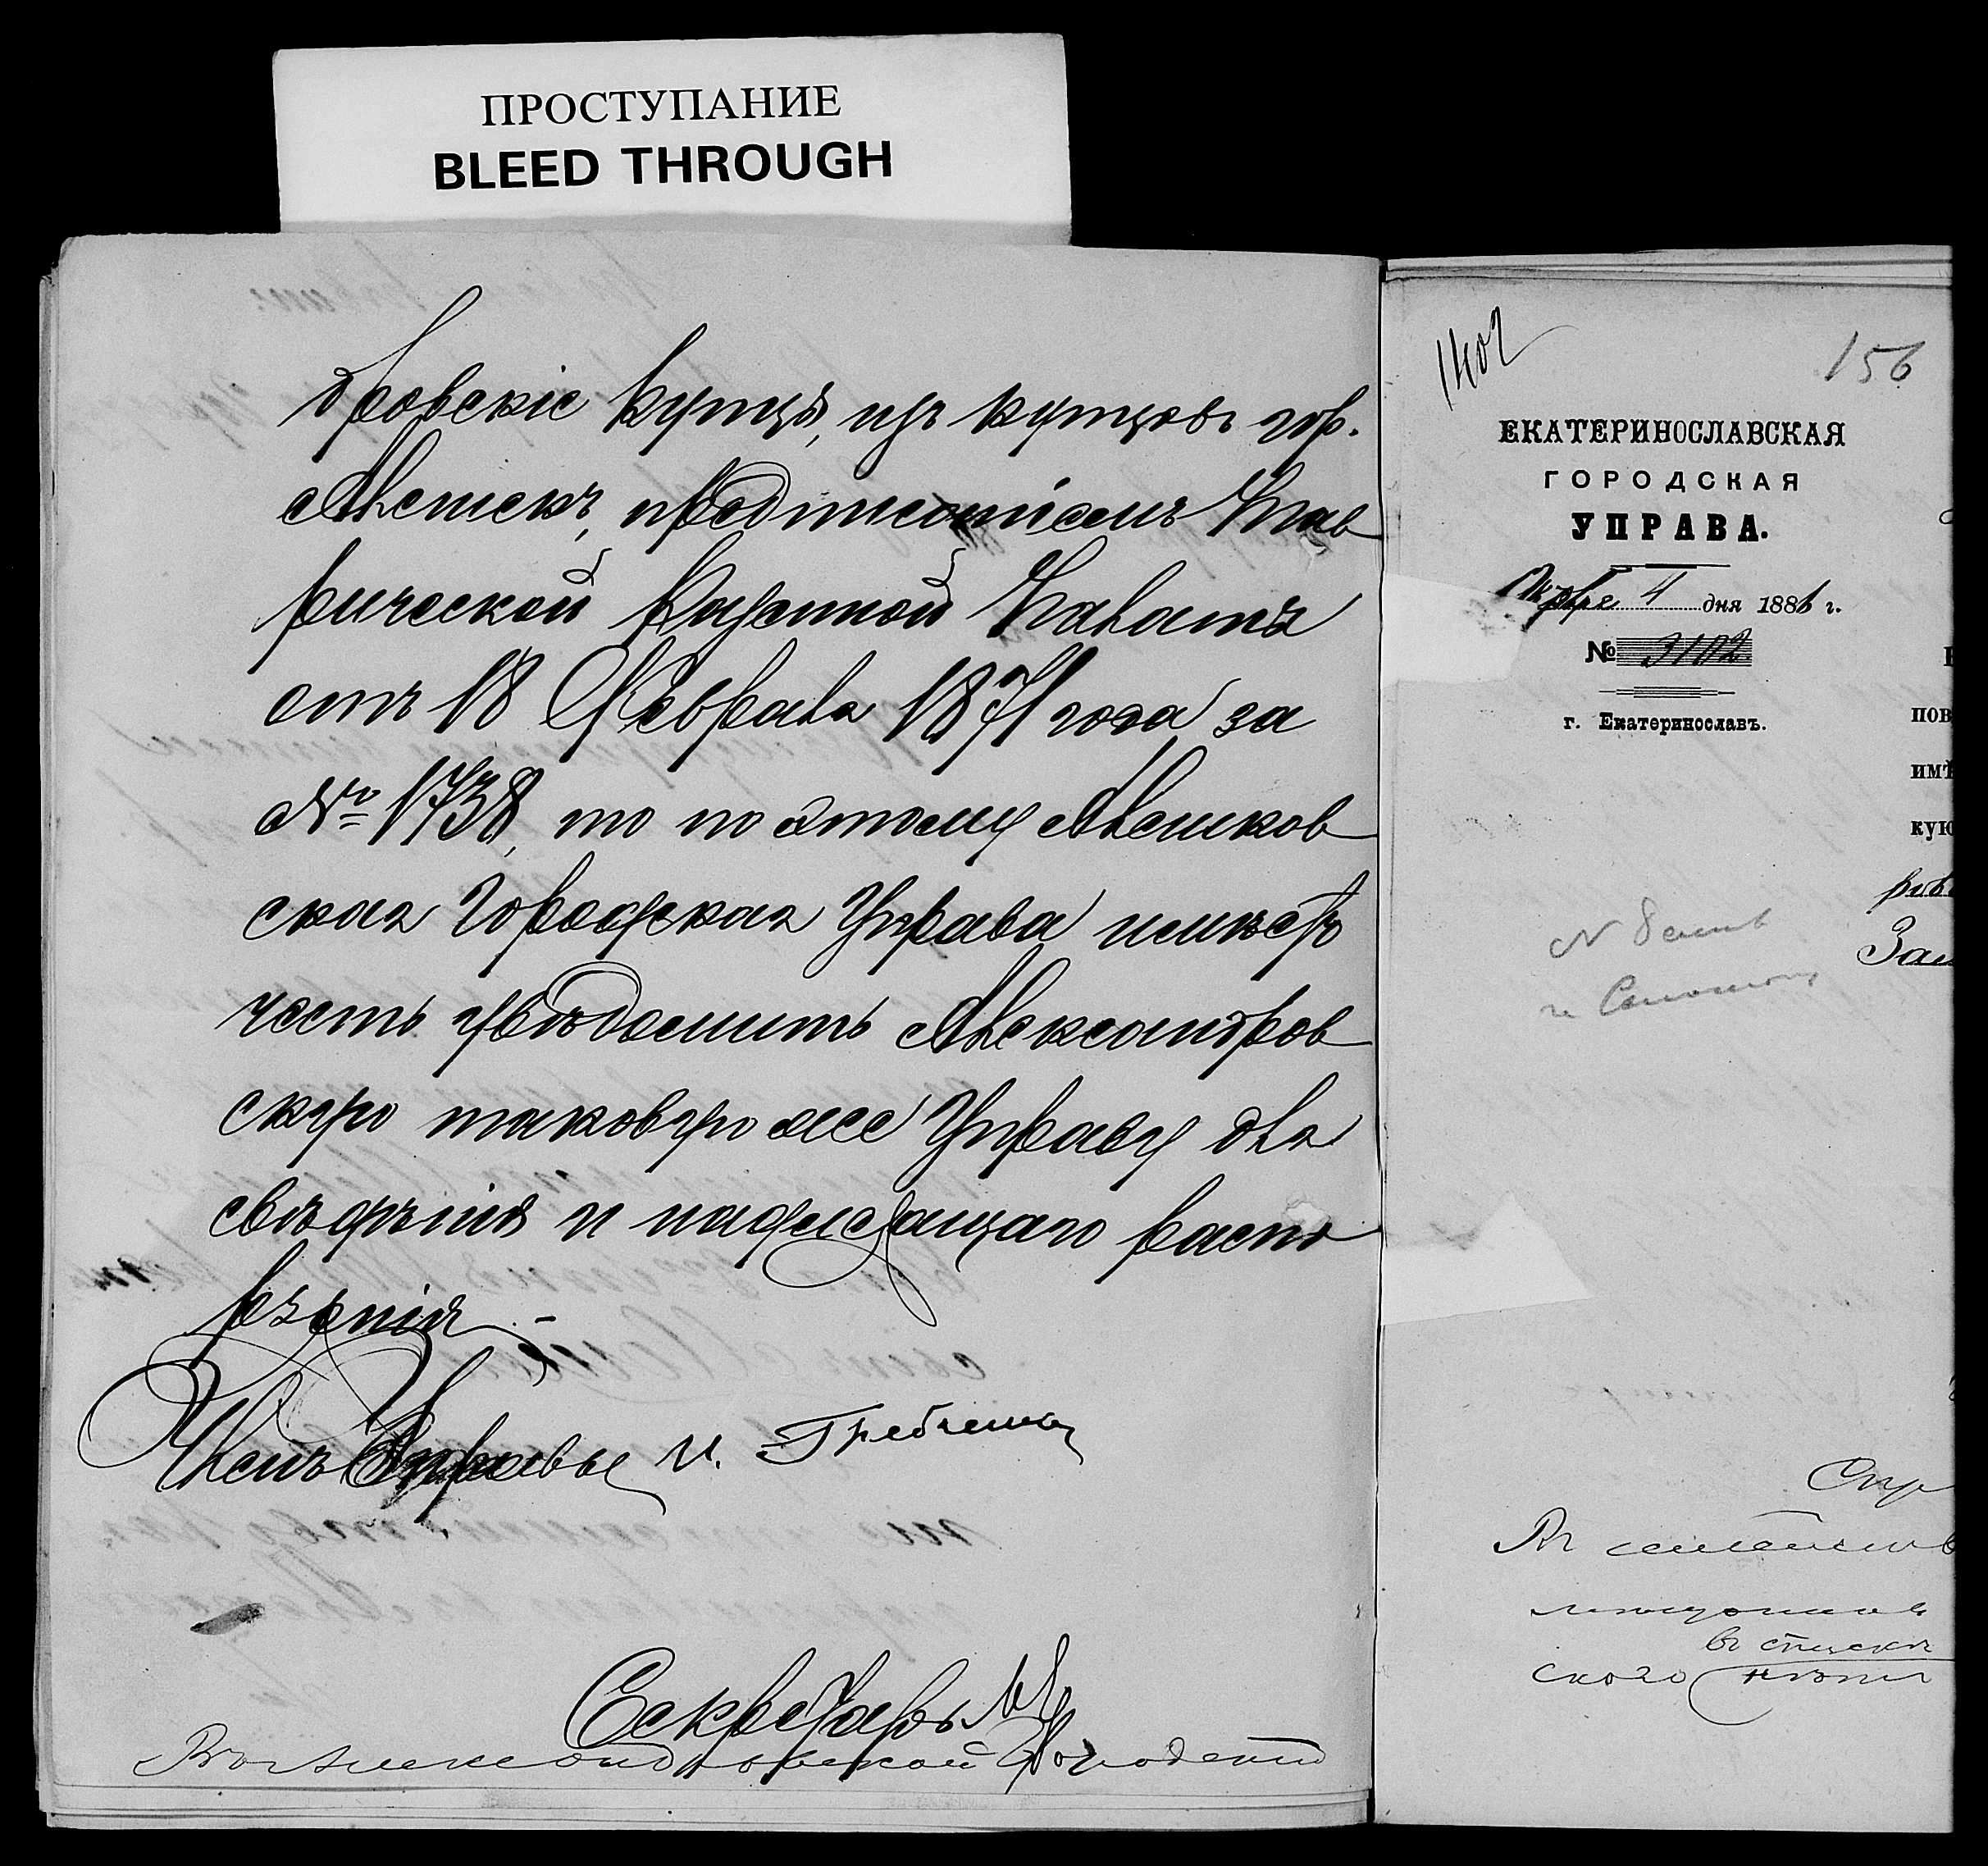 ПРОСТУПАНИЕ
BLEED THROUGH
дровскіе купцы, изъ купцовъ гор.
Алешекъ, предписаніемъ Тав
рической Казенной Палаты
отъ 18 Февраля 1871 года за
№ 1738, то по этому Алешков
ская Городская Управа имѣетъ
честь увѣдомить Александров
скую таковую же Управу для
свѣдѣнія и надлежащаго распо
ряженія.-
Членъ Управы И.
Секретарь
Городской
1402
156
ЕКАТЕРИНОСЛАВСКАЯ
ГОРОДСКАЯ
УПРАВА.
4 дня 1886 г.
№ 3102
г. Екатеринославъ.
пов
имѣ
кую
Зак
Спр
въ списка
ского